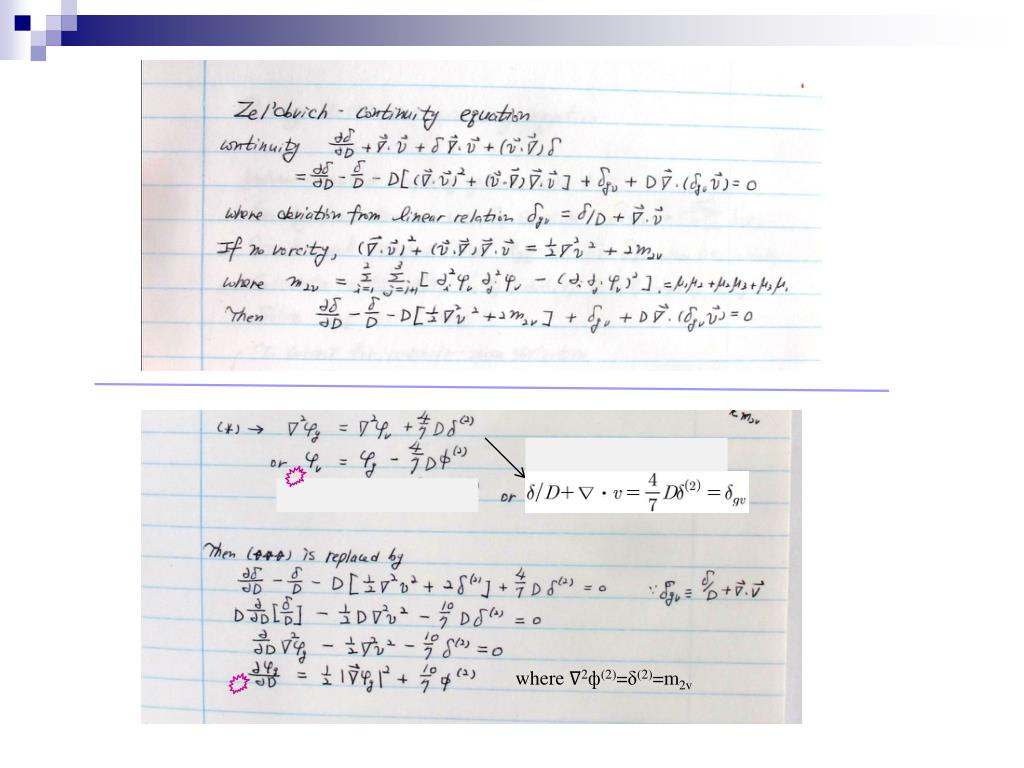 Zel'dovich - continuity equation
continuity ∂δ/∂D + ∇⃗·v⃗ + δ∇⃗·v⃗ + (v⃗·∇⃗)δ
= ∂δ/∂D - δ/D - D[(∇⃗·v⃗)² + (v⃗·∇⃗)∇⃗·v⃗] + δ_gv + D∇⃗·(δ_gv v⃗) = 0
where deviation from linear relation δ_gv = δ/D + ∇⃗·v⃗
If no vorcity, (∇⃗·v⃗)² + (v⃗·∇⃗)∇⃗·v⃗ = ½∇²v² + 2m_2v
where m_2v = Σ_{i=1}^{2} Σ_{j=i+1}^{3} [∂_i²φ_v ∂_j²φ_v - (∂_i ∂_j φ_v)²]. = μ₁μ₂ + μ₂μ₃ + μ₃μ₁
Then ∂δ/∂D - δ/D - D[½∇²v² + 2m_2v] + δ_gv + D∇⃗·(δ_gv v⃗) = 0
(*) → ∇²φ_g = ∇²φ_v + 4/7 Dδ⁽²⁾
or φ_v = φ_g - 4/7 Dϕ⁽²⁾
or δ/D+∇·v = 4/7 Dδ⁽²⁾ = δ_gv
Then (***) is replaced by
∂δ/∂D - δ/D - D[½∇²v² + 2δ⁽²⁾] + 4/7 Dδ⁽²⁾ = 0 ∵ δ_gv ≡ δ/D + ∇⃗·v⃗
D ∂/∂D[δ/D] - ½D∇²v² - 10/7 Dδ⁽²⁾ = 0
∂/∂D ∇²φ_g - ½∇²v² - 10/7 δ⁽²⁾ = 0
∂φ_g/∂D = ½|∇⃗φ_g|² + 10/7 ϕ⁽²⁾ where ∇²ф⁽²⁾=δ⁽²⁾=m_2v